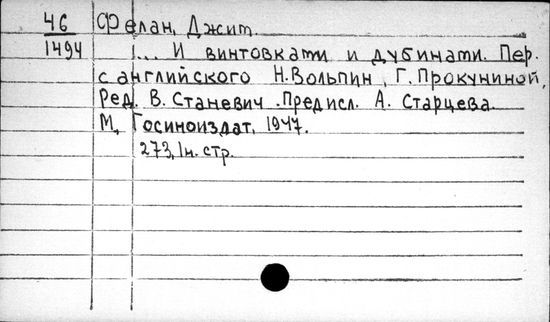 46 Фелан, Джит.
1494 ... И винтовками и дубинами. Пер.
с английского Н. Вольпин, Г. Прокуниной,
Ред. В. Станевич. Предисл. А. Старцева.
М., Госиноиздат, 1947.
273, 1н. стр.